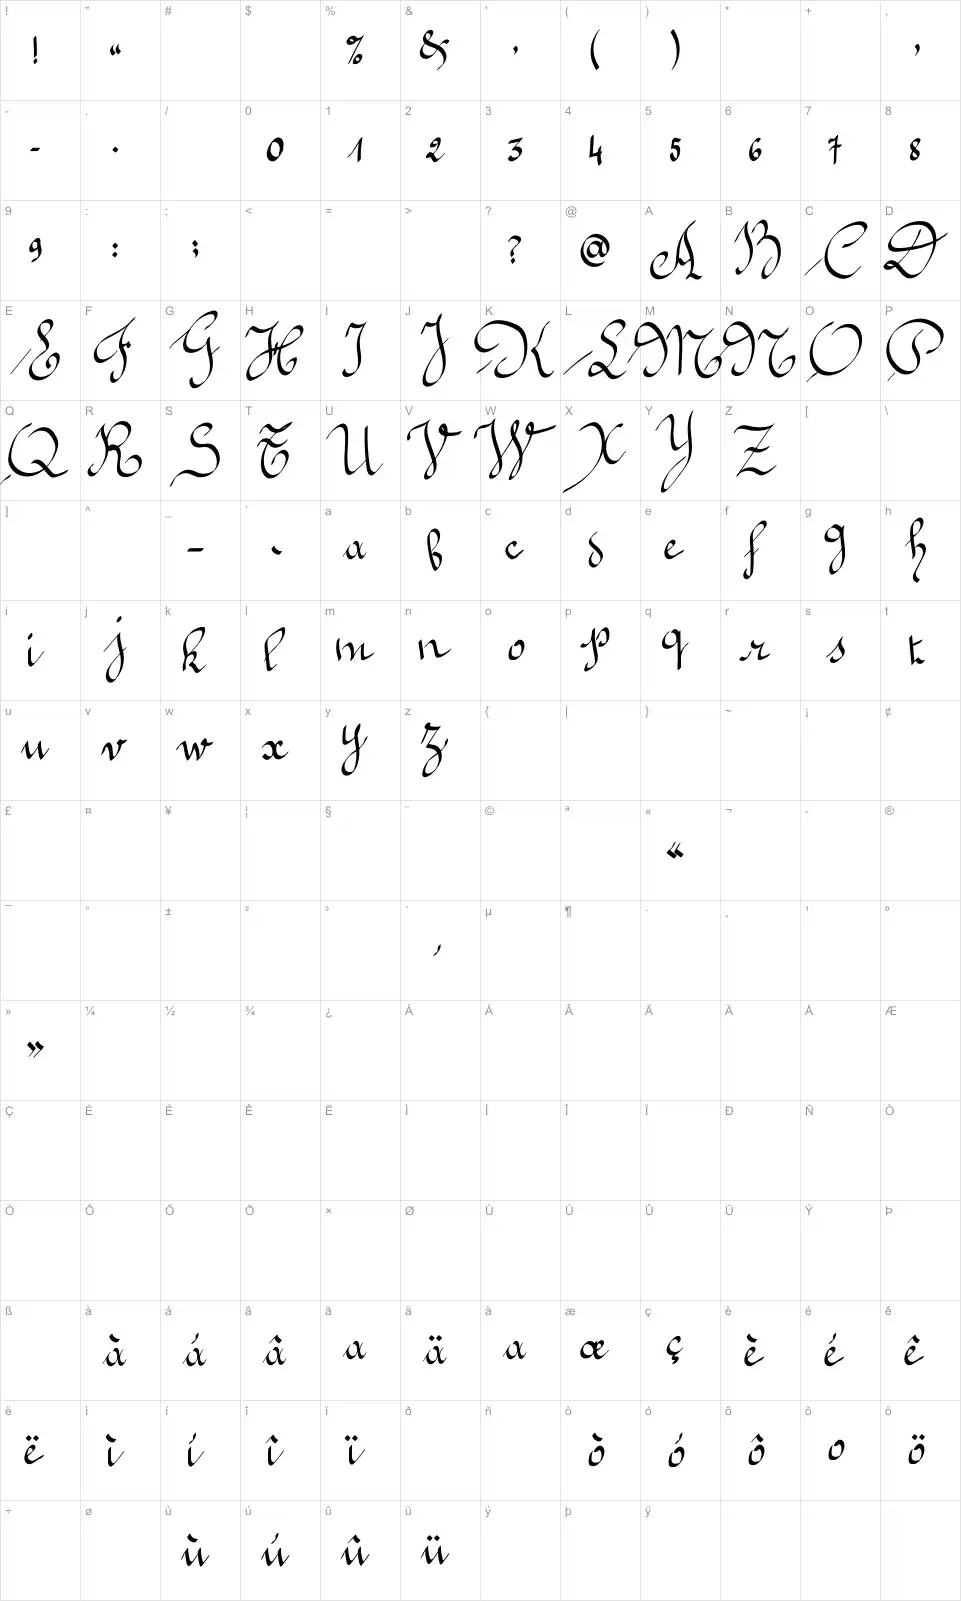 ! " # $ % & ' ( ) * + ,
! “ % & ’ ( ) ,
- . / 0 1 2 3 4 5 6 7 8
- . 0 1 2 3 4 5 6 7 8
9 : ; < = > ? @ A B C D
9 : ; ? @ A B C D
E F G H I J K L M N O P
E F G H I J K L M N O P
Q R S T U V W X Y Z [ \
Q R S T U V W X Y Z
] ^ _ ` a b c d e f g h
_ ` a b c d e f g h
i j k l m n o p q r s t
i j k l m n o p q r s t
u v w x y z { | } ~ ¡ ¢
u v w x y z
£ ¤ ¥ ¦ § ¨ © ª « ¬ - ®
«
¯ ° ± ² ³ ´ µ ¶ · ¸ ¹ º
´
» ¼ ½ ¾ ¿ À Á Â Ã Ä Å Æ
»
Ç È É Ê Ë Ì Í Î Ï Ð Ñ Ò
Ó Ô Õ Ö × Ø Ù Ú Û Ü Ý Þ
ß à á â ã ä å æ ç è é ê
à á â a ä a æ ç è é ê
ë ì í î ï ð ñ ò ó ô õ ö
ë ì í î ï ò ó ô o ö
÷ ø ù ú û ü ý þ ÿ
ù ú û ü